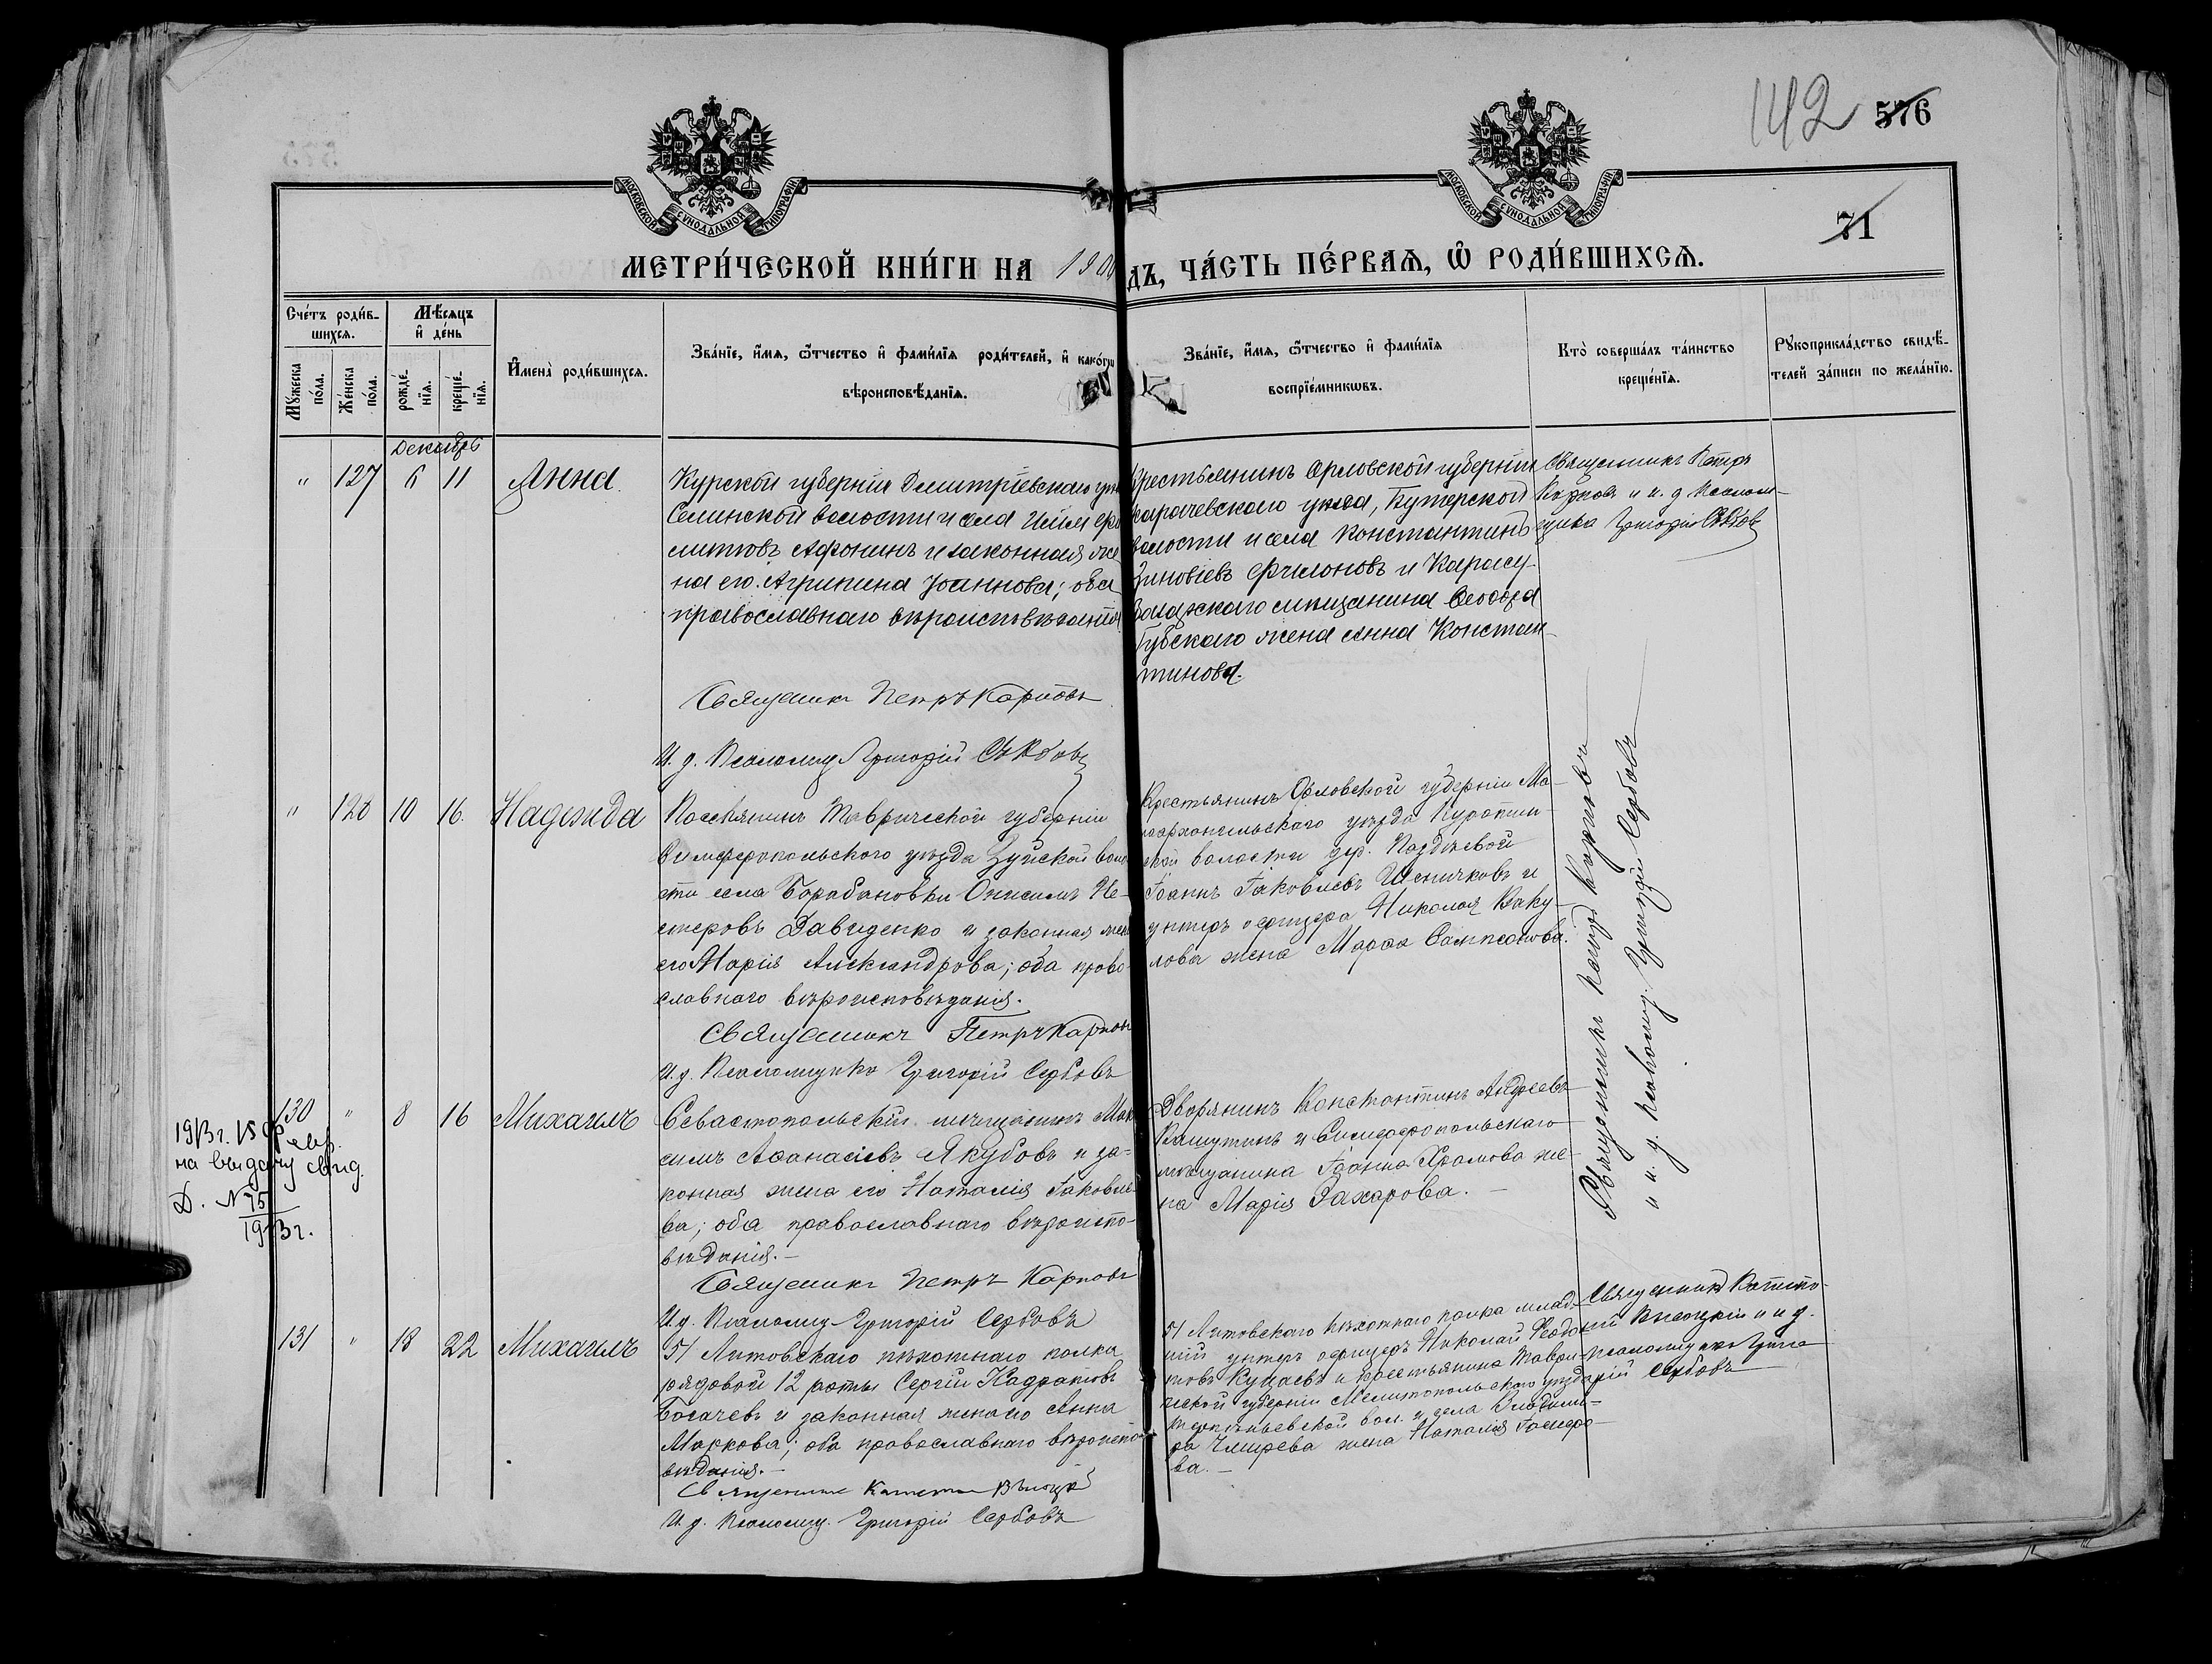 142 576
71
МОСКОВСКОЙ СУНОДАЛЬНОЙ ТИПОГРАФІИ
МОСКОВСКОЙ СУНОДАЛЬНОЙ ТИПОГРАФІИ
МЕТРИ́ЧЕСКОЙ КНИ́ГИ НА 190 ДЪ, ЧА́СТЬ ПЕ́РВАѦ, Ѡ РОДИ́ВШИХСѦ.
Сче́тъ роди́в-
шихсѧ.
Мꙋжеска по́ла.
Же́нска по́ла.
Мѣ́сѧцъ
и҆ де́нь
рожде́-
нїѧ.
креще́-
нїѧ.
И҆мена̀ роди́вшихсѧ.
Зва́нїе, и҆́мѧ, ѻ҆́тчество и҆ фами́лїѧ роди́телей, и҆ како́гѡ
вѣроисповѣ́данїѧ.
Зва́нїе, и҆́мѧ, ѻ҆́тчество и҆ фами́лїѧ
воспрїе́мникѡвъ.
Кто̀ соверша́лъ та́инство
креще́нїѧ.
Рꙋкоприкла́дство свидѣ́-
телей за́писи по жела́нїю.
Декабрь
" 127 6 11 Анна.
Курской губерніи Дмитріевскаго уѣз
Селинской волости и села
Афонинъ и законная же
на его Агрипина Іоаннова; оба
православнаго вѣроисповѣданія
Священникъ Петръ Карповъ
И. д. Псаломщ. Григорій Сербовъ
Крестьянинъ Орловской губерніи
Карачевскаго уѣзда, Бутерской
волости и села Константинъ
Зиновіевъ Филоновъ и Карасу-
базарскаго мѣщанина Ѳеодора
Губскаго жена Анна Констан-
тинова.
Священникъ Петръ
Карповъ и и. д. Псалом-
щика Григорій Сербовъ
" 128 10 16. Надежда
Поселянинъ Таврической губерніи
Симферопольскаго уѣзда Зуйской воло
сти села Барабановки Онисимъ Не-
стеровъ Давиденко и законная жен
его Марія Александрова; оба право-
славнаго вѣроисповѣданія.
Священникъ Петръ Карповъ
И. д. Псаломщика Григорій Сербовъ
Крестьянинъ Орловской губерніи Ма-
лоархангельскаго уѣзда
ской волости дер. Поздѣевой
Іоаннъ Іаковлевъ и
унтеръ офицера Николая Ваку-
лова жена Марѳа Сампсонова.
Священникъ Петръ Карповъ
и и. д. псаломщ. Григорій Сербовъ
1913 г. 15 февр.
на выдачу свид.
Д. № 75
1913 г.
130 " 8 16 Михаилъ
Севастопольскій мѣщанинъ Мак
симъ Аѳанасіевъ Якубовъ и за-
конная жена его Наталія Іаковле-
ва; оба православнаго вѣроиспо-
вѣданія.-
Священникъ Петръ Карповъ
И. д. Псаломщ. Григорій Сербовъ
Дворянинъ Константинъ Андреевъ
и Симферопольскаго
мѣщанина Іоанна Храмова же-
на Марія Захарова.-
131 " 18 22 Михаилъ
51 Литовскаго пѣхотнаго полка
рядовой 12 роты Сергій Кадратовъ
Богачевъ и законная жена его Анна
Маркова; оба православнаго вѣроиспо
вѣданія.-
Священникъ
И. д. Псаломщ. Григорій Сербовъ
51 Литовскаго пѣхотнаго полка млад-
шій унтеръ офицеръ Николай Ѳеодо-
товъ Куцаевъ и крестьянина Таври-
ческой губерніи Мелитопольскаго уѣзда
вол. и села Владимі-
ра жена Наталія
ва.-
Священникъ
и и. д.
псаломщика Григо
рій Сербовъ